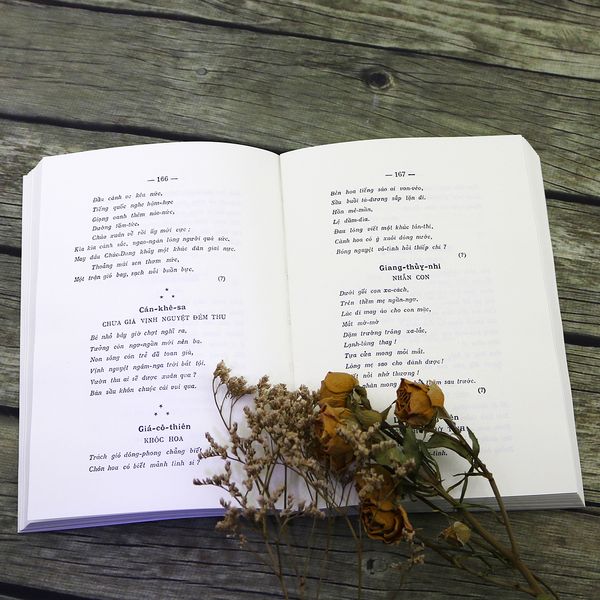 — 166 —
Dầu cánh ve kêu nức,
Tiếng quốc nghe hậm-hực
Giọng oanh thêm náo-nức,
Dường tấm-tức.
Chúa xuân về rồi ủy mới cực ;
Kìa kìa cảnh sắc, ngao-ngán lòng người quá sức.
May đâu Chức-Dong khảy một khúc đàn giải nực.
Thoảng mùi sen thơm nức,
Một trận gió bay, sạch nỗi buồn bực.
(?)
* *
*
Cán-khê-sa
CHƯA GIÀ VỊNH NGUYỆT ĐÊM THU
Bé nhỏ bây giờ chợt nghĩ ra,
Tưởng còn ngơ-ngẩn mới nên ba.
Non sông còn trẻ đã toan già,
Vịnh nguyệt ngâm-nga trời bất tội.
Vườn thu ai sẽ được xuân qua ?
Bán sầu khôn chuộc cái vui qua.
* *
*
Giá-cô-thiên
KHÓC HOA
Trách gió đông-phong chẳng biết
Chôn hoa có biết mảnh tình si ?
— 167 —
Bên hoa tiếng sáo ai von-véo,
Sầu buổi tà-dương sắp lặn đi.
Hồn mê-mẩn,
Lệ đầm-đìa.
Đau lòng viết một khúc lâm-thi,
Cánh hoa có ý xuôi dòng nước,
Bóng nguyệt vô-tình hỏi thiếp chi ?
(?)
Giang-thủy-nhi
NHẮN CON
Dưới gối con xa-cách,
Trên thềm mẹ ngẩn-ngơ,
Lúc đi may áo cho con mặc,
Mắt mờ-mờ
Dặm trường trông xa-lắc,
Lạnh-lùng thay !
Tựa cửa mong mỏi mắt.
Lòng mẹ sao cho đành được!
nỗi nhớ thương !
phàn mong thêm sau trước.
(?)